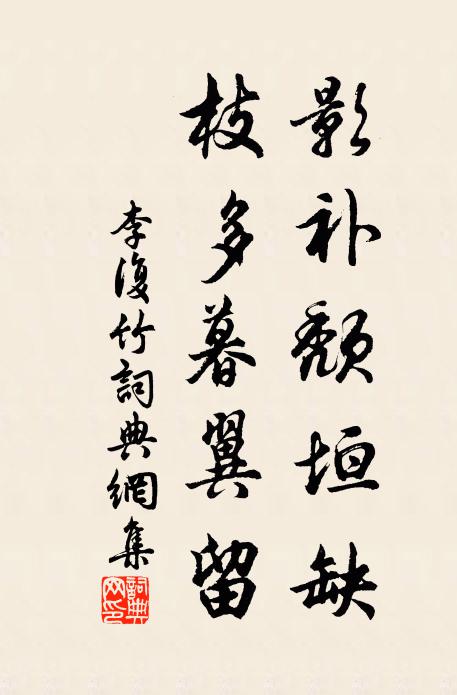 影补颓垣缺
枝多暮翼留
李復竹詞典網集
詞典網印